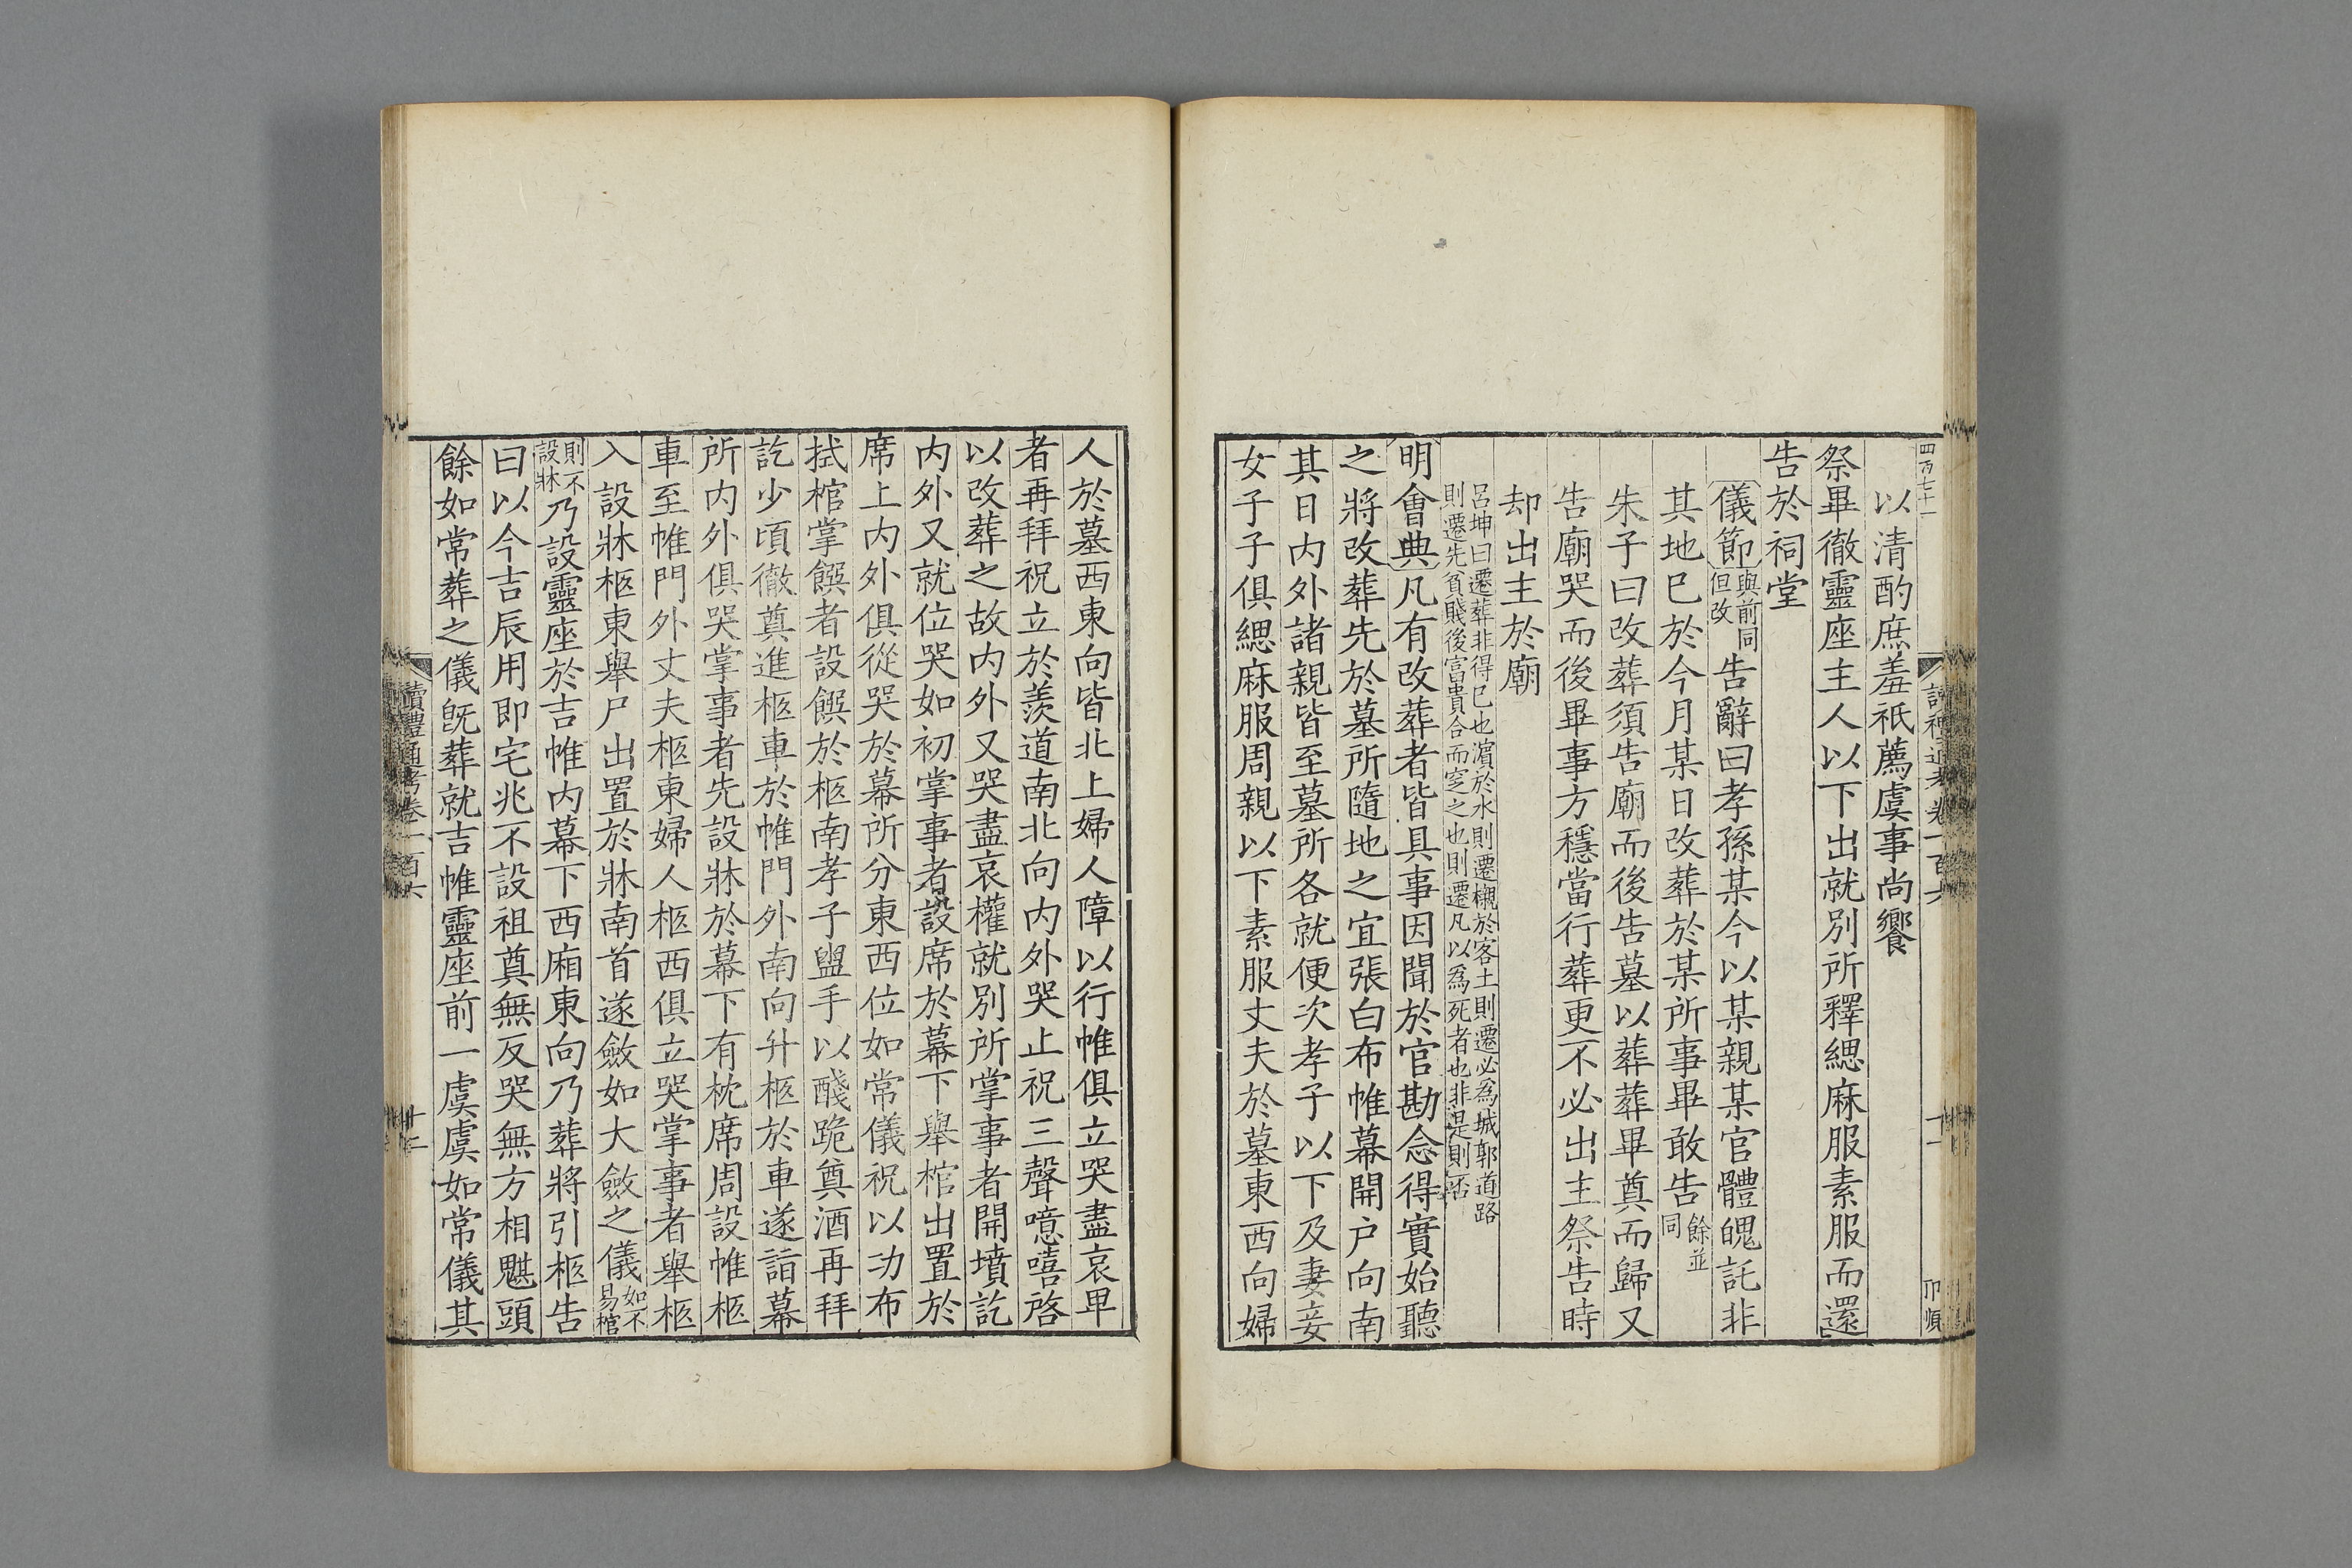 四百七十一
讀禮通考卷一百六
十一
以清酌庶羞祇薦虞事尚饗
祭畢徹靈座主人以下出就別所釋緦麻服素服而還
告於祠堂
儀節與前同但改告辭曰孝孫某今以某親某官體魄託非
其地已於今月某日改葬於某所事畢敢告餘並同
朱子曰改葬須告廟而後告墓以葬葬畢奠而歸又
告廟哭而後畢事方穩當行葬更不必出主祭告時
却出主於廟
呂坤曰遷葬非得已也濵於水則遷櫬於客土則遷必爲城郭道路
則遷先貧賤後富貴合而窆之也則遷凡以爲死者也非是則否
明會典凡有改葬者皆具事因聞於官勘念得實始聽
之將改葬先於墓所隨地之宜張白布帷幕開户向南
其日内外諸親皆至墓所各就便次孝子以下及妻妾
女子子俱緦麻服周親以下素服丈夫於墓東西向婦
人於墓西東向皆北上婦人障以行帷俱立哭盡哀卑
者再拜祝立於羨道南北向内外哭止祝三聲噫嘻啓
以改葬之故内外又哭盡哀權就別所掌事者開墳訖
内外又就位哭如初掌事者設席於幕下舉棺出置於
席上内外俱從哭於幕所分東西位如常儀祝以功布
拭棺掌饌者設饌於柩南孝子盥手以醆跪奠酒再拜
訖少頃徹奠進柩車於帷門外南向升柩於車遂詣幕
所内外俱哭掌事者先設牀於幕下有枕席周設帷柩
車至帷門外丈夫柩東婦人柩西俱立哭掌事者舉柩
入設牀柩東舉尸出置於牀南首遂斂如大斂之儀如不易棺
則不設牀乃設靈座於吉帷内幕下西廂東向乃葬將引柩告
曰以今吉辰用即宅兆不設祖奠無反哭無方相魌頭
餘如常葬之儀旣葬就吉帷靈座前一虞虞如常儀其
讀禮通考卷一百六